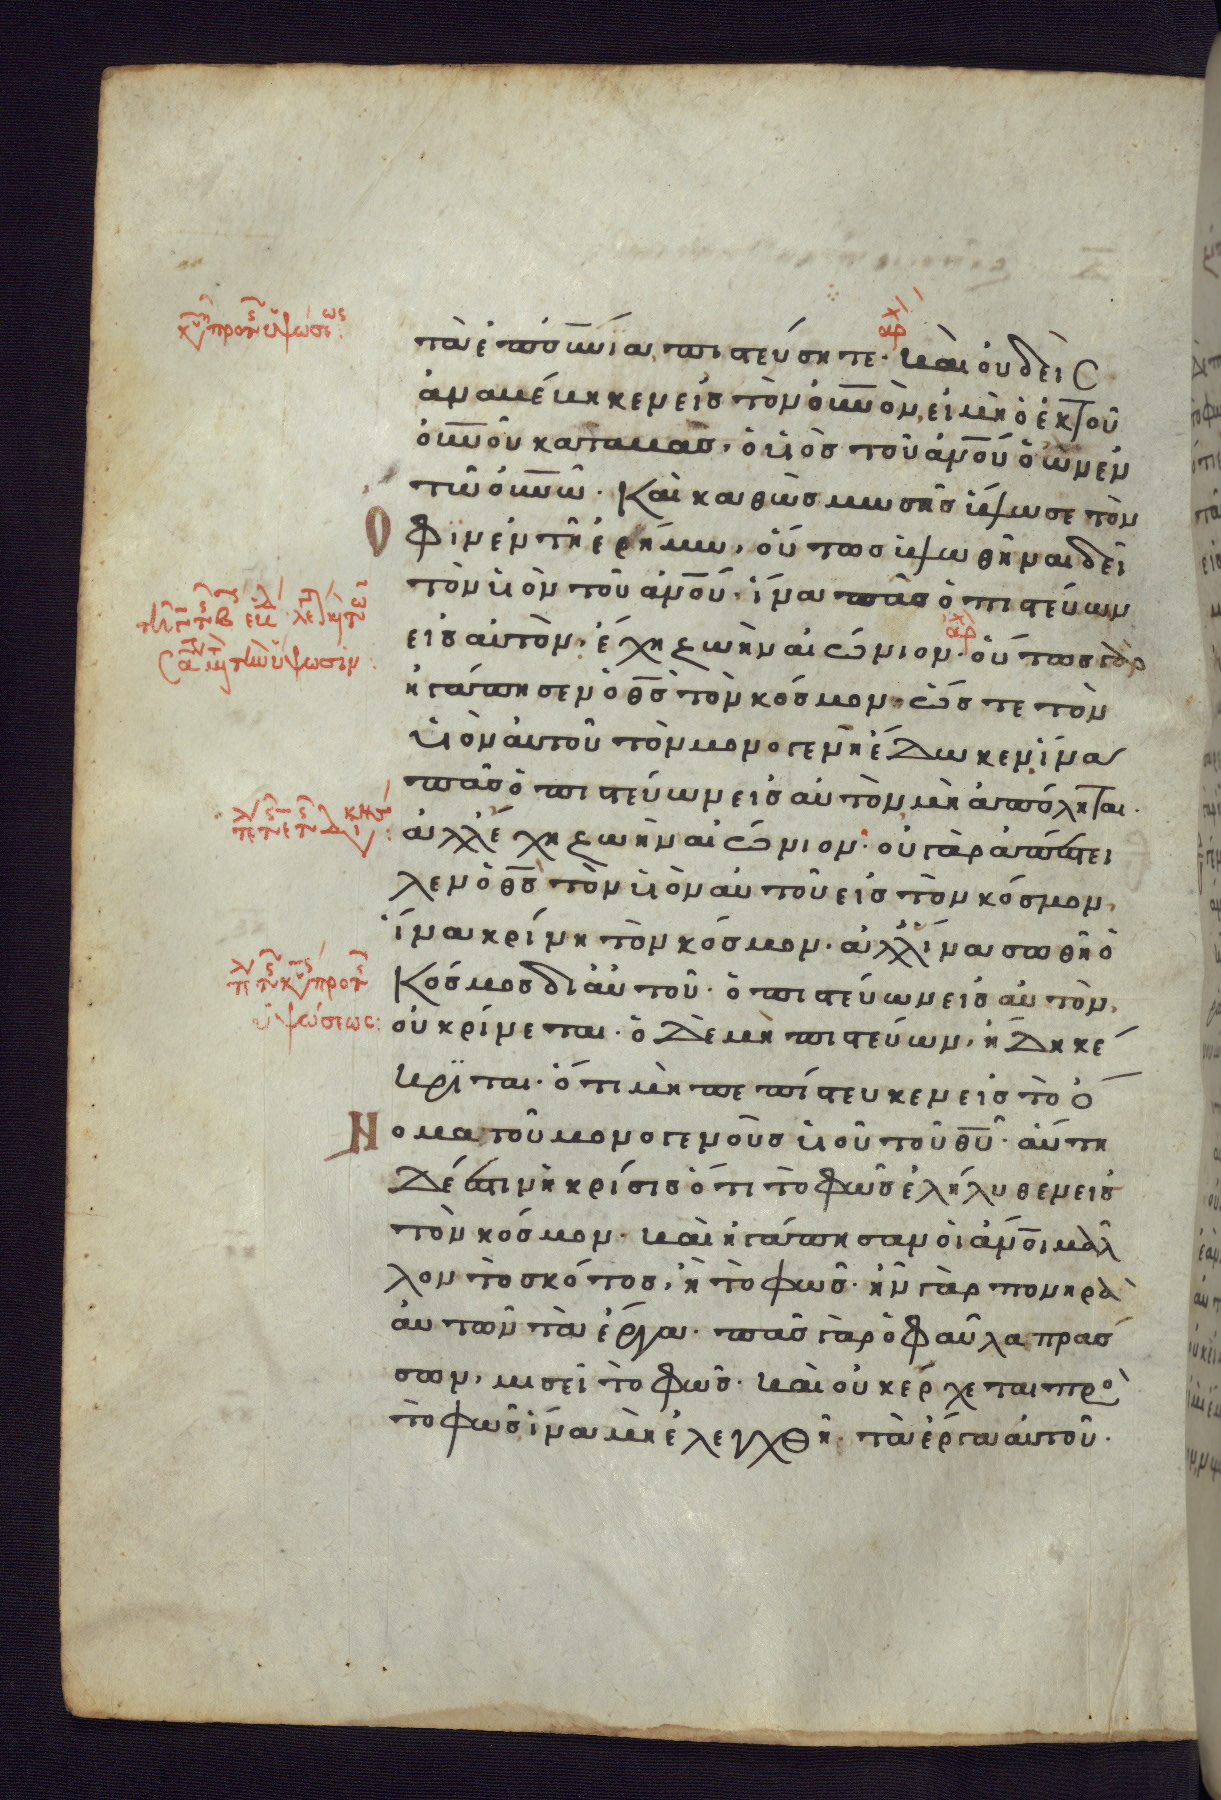 κυ προ τ υψώσεως:
ἀρχ
τὰ ἐπουνια πιστεύσητε· Καὶ οὐδεὶς
ἀναμέμηκεν εἰς τὸν οὐνὸν, εἰ μὴ ὁ ἐκ τοῦ
οὐνοῦ καταμὰς, ὁ υἱὸς τοῦ ἀνου ὁ ὢν ἐν
τῶ οὐνῶ· Καὶ καθὼς μωσῆς ὕψωσε τὸν
Ὄφιν ἐν τῆ ἐρήμω, οὕτως ὑψωθῆναι δεῖ
τὸν υἱὸν τοῦ ἀνου· ἵνα πᾶς ὁ πιστεύων
ἀρχ
εἰς αὐτὸν, ἔχη ζωὴν αἰώνιον· οὕτως γὰρ
ἠγάπησεν ὁ θς τὸν κόσμον, ὥστε τὸν
υἱὸν αὐτοῦ τὸν μονογενῆ ἔδωκεν ἵνα
πᾶς ὁ πιστεύων εἰς αὐτὸν μὴ ἀπόληται·
ἀλλ' ἔχη ζωὴν αἰώνιον· οὐ γὰρ ἀπέστει
λεν ὁ θς τὸν υἱὸν αὐτοῦ εἰς τὸν κόσμον,
ἵνα κρίνη τὸν κόσμον· ἀλλ' ἵνα σωθῆ ὁ
Κόσμος δι' αὐτοῦ· ὁ πιστεύων εἰς αὐτὸν,
ὑψώσεως:
οὐ κρίνεται· ὁ δὲ μὴ πιστεύων, ἤδη κέ
κριται· ὅτι μὴ πεπίστευκεν εἰς τὸ ὄ
Νομα τοῦ μονογενοῦς υἱοῦ τοῦ θυ· αὕτη
δέ ἐστιν ἡ κρίσις ὅτι τὸ φῶς ἐλήλυθεν εἰς
τὸν κόσμον· καὶ ἠγάπησαν οἱ ἀνοι μᾶλ
λον τὸ σκότος, ἢ τὸ φῶς· ἦν γὰρ πονηρὰ
αὐτῶν τὰ ἔργα· πᾶς γὰρ ὁ φαῦλα πράσ
σων, μισεῖ τὸ φῶς· καὶ οὐκ ἔρχεται πρὸ
τὸ φῶς ἵνα μὴ ἐλεγχθῆ τὰ ἔργα αὐτοῦ·